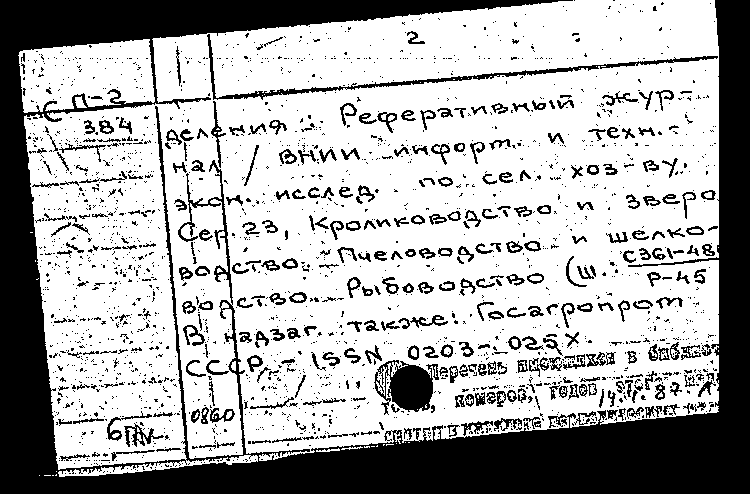 2
С П-2
384
деления: Реферативный жур-
нал / ВНИИ информ. и техн.-
экон. исслед. по сел. хоз-ву.
Сер. 23, Кролиководство и зверо
водство. Пчеловодство и шелко-
водство. Рыбоводство (Ш.: С361-48
Р-45
В надзаг. также: Госагропром
СССР. - ISSN 0203-025X.
Перечень имеющихся в библиот
номеров, годов
0860